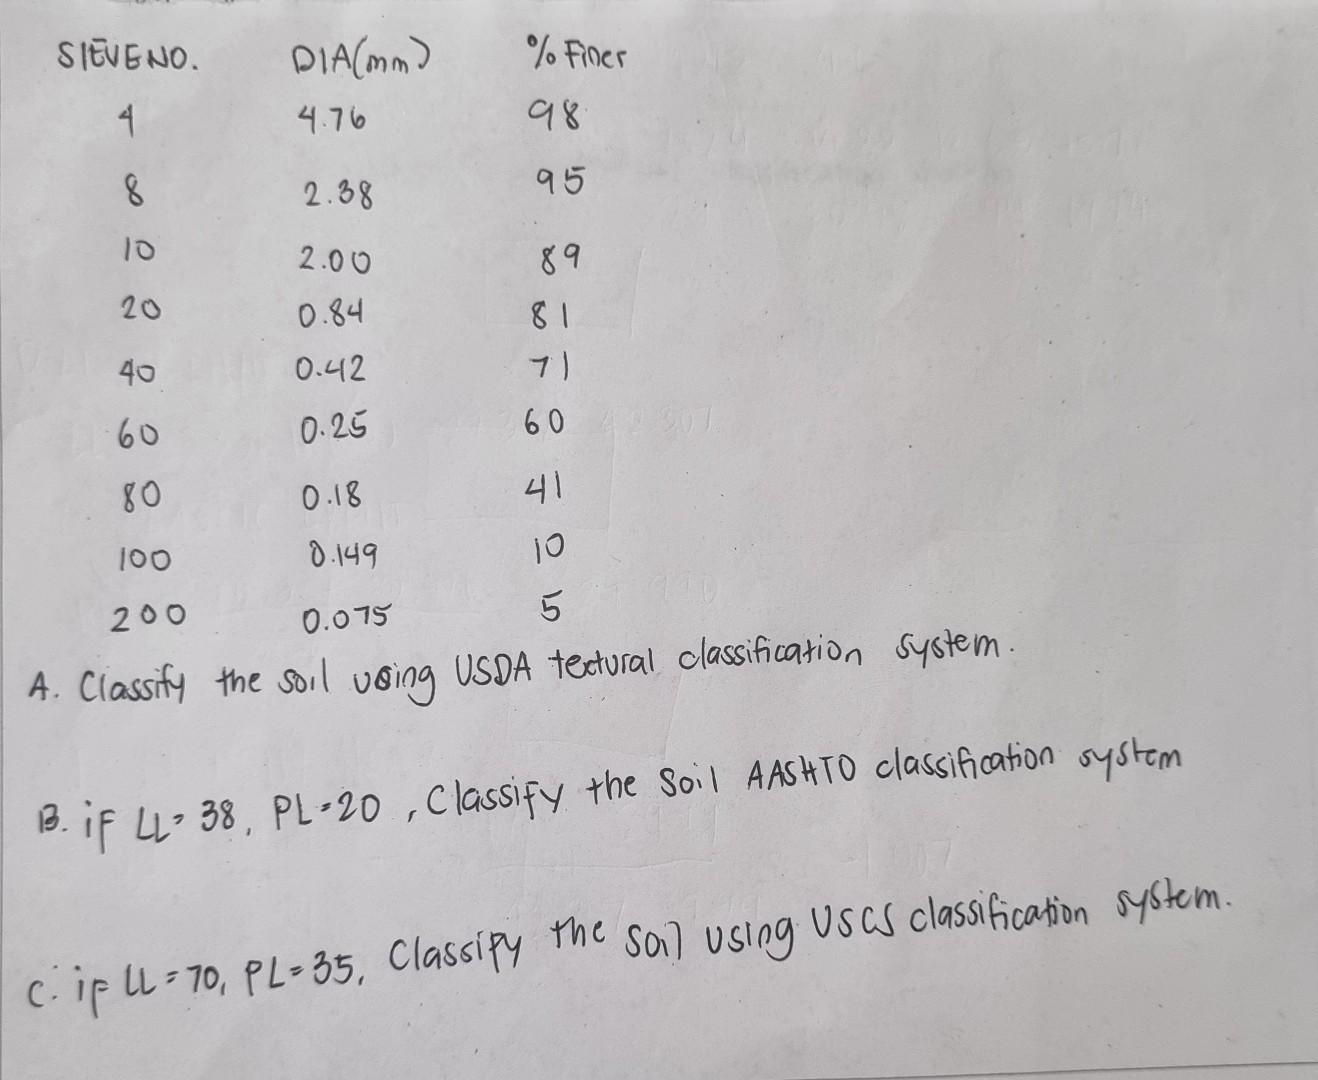 SIEVE NO. DIA(mm) % Finer
4 4.76 98
8 2.38 95
10 2.00 89
20 0.84 81
40 0.42 71
60 0.25 60
80 0.18 41
100 0.149 10
200 0.075 5
A. Classify the soil using USDA textural classification system.
B. if LL = 38, PL = 20, Classify the Soil AASHTO classification system
C. if LL = 70, PL = 35, Classify the soil using USCS classification system.